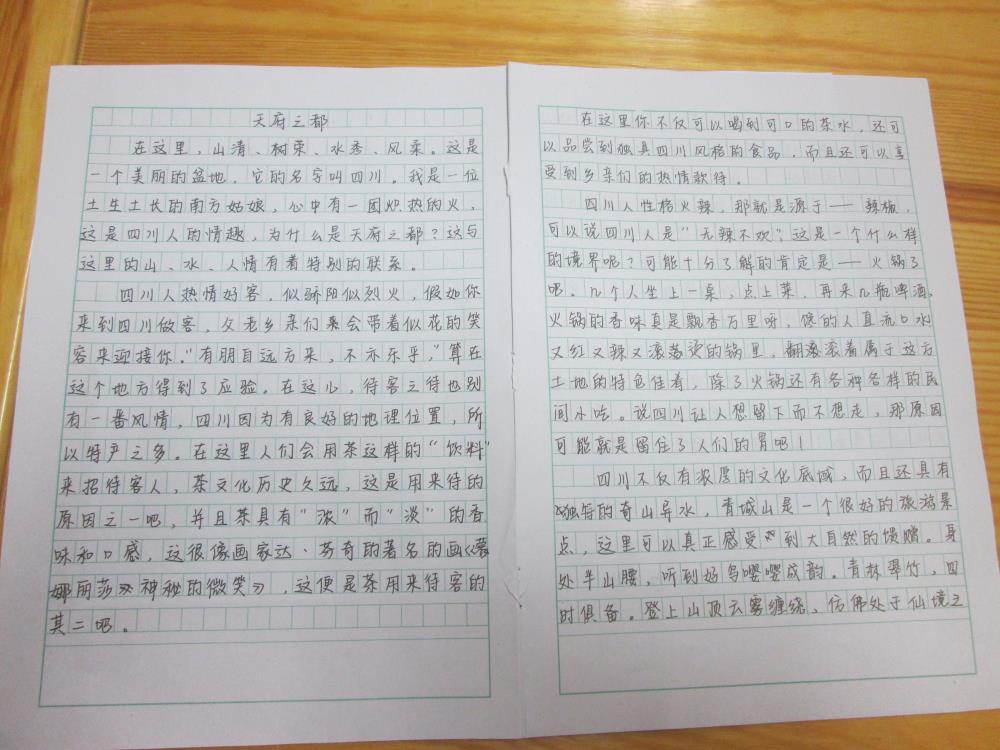 天府之都
在这里，山清、树荣、水秀、风柔。这是
一个美丽的盆地，它的名字叫四川。我是一位
土生土长的南方姑娘，心中有一团炽热的火，
这是四川人的情趣，为什么是天府之都？这与
这里的山、水、人情有着特别的联系。
四川人热情好客，似骄阳似烈火，假如你
来到四川做客，父老乡亲们会带着似花的笑
容来迎接你。“有朋自远方来，不亦乐乎，”算在
这个地方得到了应验。在这儿，待客之待也别
有一番风情。四川因为有良好的地理位置，所
以特产之多。在这里人们会用茶这样的“饮料”
来招待客人，茶文化历史久远，这是用来待的
原因之一吧，并且茶具有“浓”而“淡”的香
味和口感，这很像画家达·芬奇的著名的画《蒙
娜丽莎》《神秘的微笑》，这便是茶用来待客的
其二吧。
在这里你不仅可以喝到可口的茶水，还可
以品尝到独具四川风格的食品，而且还可以享
受到乡亲们的热情款待。
四川人性格火辣，那就是源于——辣椒，
可以说四川人是“无辣不欢”，这是一个什么样
的境界呢？可能十分了解的肯定是——火锅了
吧。几个人坐上一桌，点上菜，再来几瓶啤酒、
火锅的香味真是飘香万里呀，馋的人直流口水
又红又辣又滚荡烫的锅里，翻滚着属于这方
土地的特色佳肴，除了火锅还有各种各样的民
间小吃。说四川让人想留下而不想走，那原因
可能就是留住了人们的胃吧！
四川不仅有浓厚的文化底域，而且还具有
独特的奇山异水，青城山是一个很好的旅游景
点，这里可以真正感受到大自然的馈赠。身
处半山腰，听到好鸟嘤嘤成韵。青林翠竹，四
时俱备。登上山顶云雾缠绕，仿佛处于仙境之